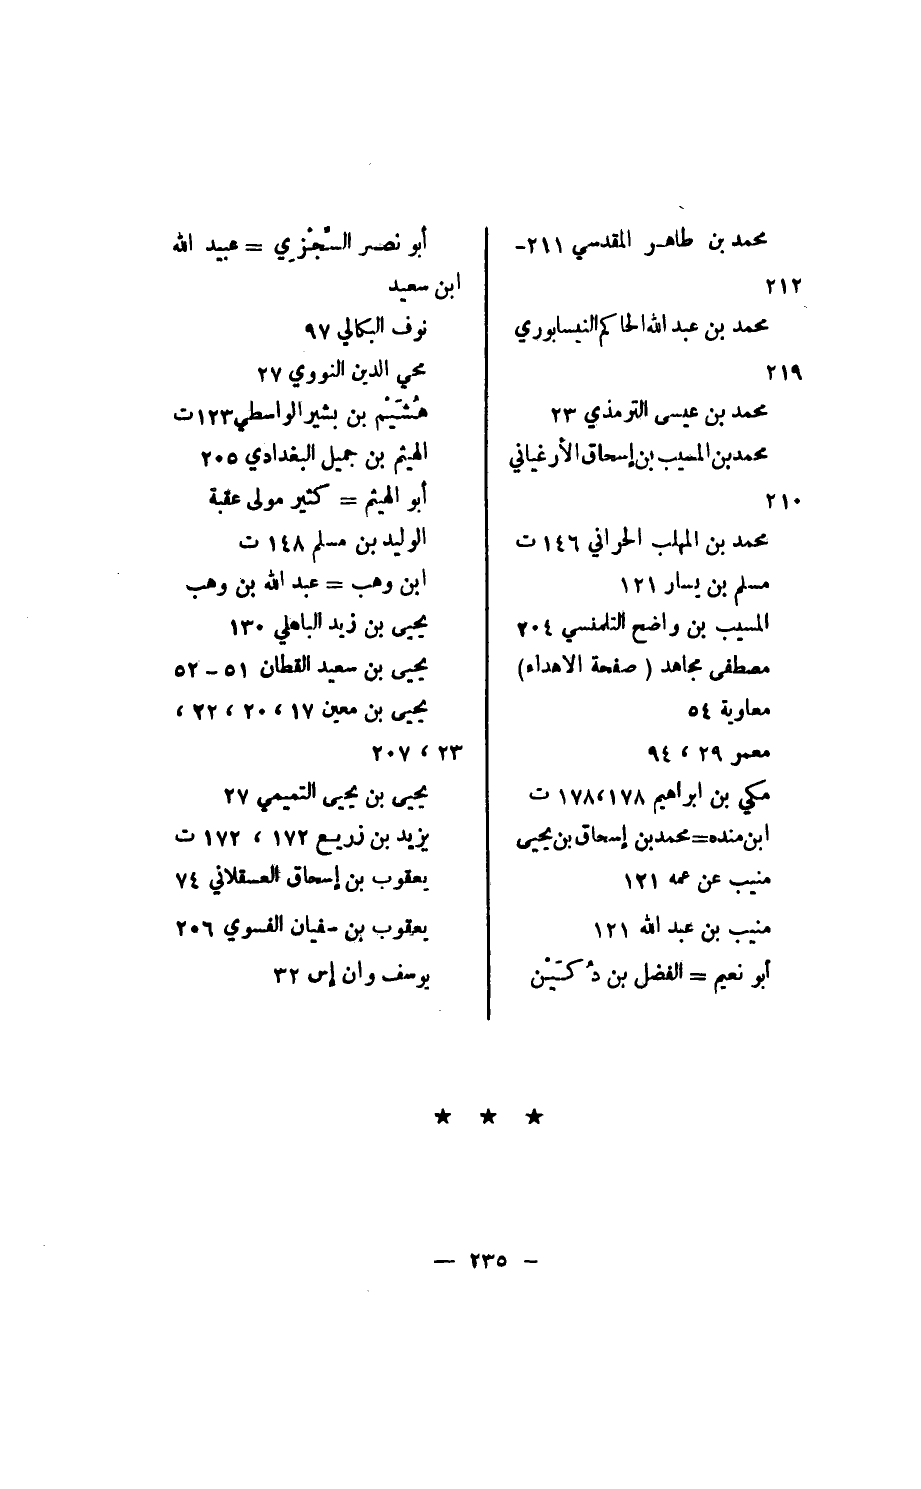 محمد بن طاهر المقدسي ٢١١-
٢١٢
محمد بن عبد الله الحاكم النيسابوري
٢١٩
محمد بن عيسى الترمذي ٢٣
محمد بن المسيب بن إسحاق الأرغياني
٢١٠
محمد بن المهلب الحراني ١٤٦ ت
مسلم بن يسار ١٢١
المسيب بن واضح التلمنسي ٢٠٤
مصطفى مجاهد ( صفحة الاهداء)
معاوية ٥٤
معمر ٢٩ ، ٩٤
مكي بن ابراهيم ١٧٨،١٧٨ ت
ابن منده=محمد بن إسحاق بن يحيى
منيب عن عمه ١٢١
منيب بن عبد الله ١٢١
أبو نعيم = الفضل بن دُكَيْن
أبو نصر السِّجْزي = عبيد الله
ابن سعيد
نوف البكالي ٩٧
محي الدين النووي ٢٧
هُشَيْم بن بشير الواسطي ١٢٣ ت
الهيثم بن جميل البغدادي ٢٠٥
أبو الهيثم = كثير مولى عقبة
الوليد بن مسلم ١٤٨ ت
ابن وهب = عبد الله بن وهب
يحيى بن زيد الباهلي ١٣٠
يحيى بن سعيد القطان ٥١ - ٥٢
يحيى بن معين ١٧ ، ٢٠ ، ٢٢ ،
٢٣ ، ٢٠٧
يحيى بن يحيى التميمي ٢٧
يزيد بن زريع ١٧٢ ، ١٧٢ ت
يعقوب بن إسحاق العسقلاني ٧٤
يعقوب بن سفيان الفسوي ٢٠٦
يوسف وان إس ٣٢
★ ★ ★
- ٢٣٥ —